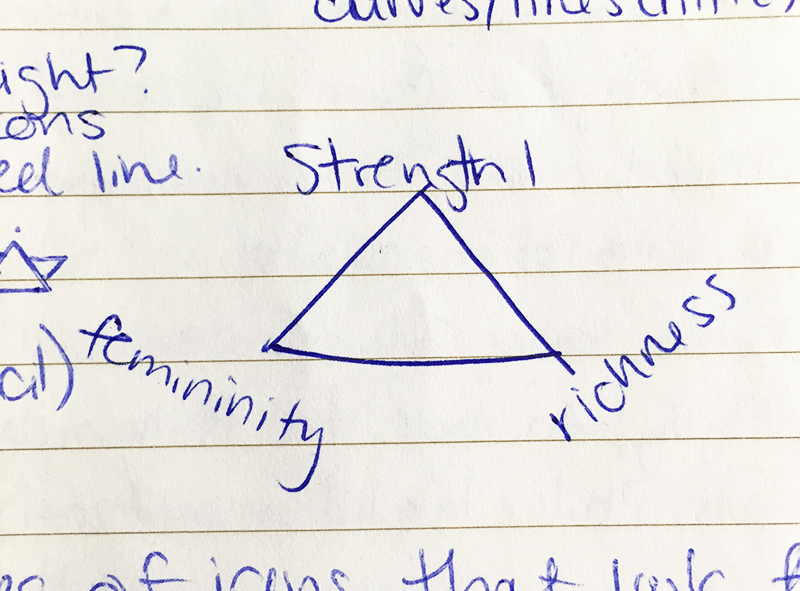 curves/lines
ight?
ons
ed line.
Strength
femininity
richness
al)
es of icons that look f